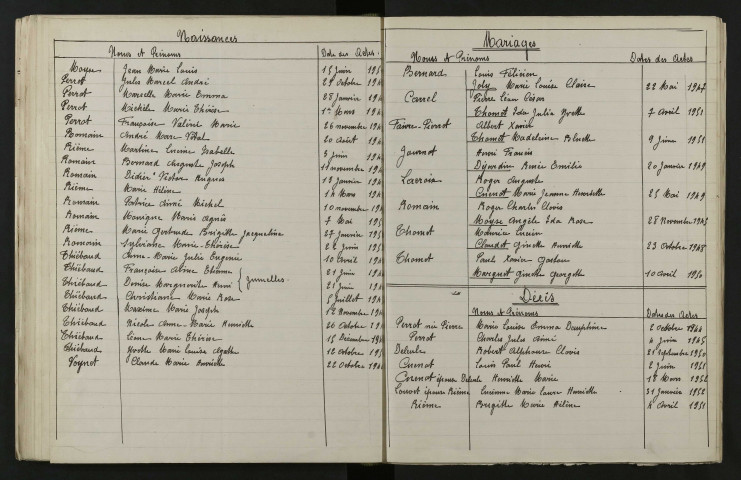 Naissances
Noms et Prénoms Date des Actes
Moyse Jean Marie Louis 15 Juin
Perrot Jules Marcel André 29 Octobre
Perrot Marcelle Marie Emma 28 Janvier
Perrot Michèle Marie Thérèse 1er Mars
Perrot Françoise Valérie Marie 26 novembre
Romain André Marc Vital 20 Août
Rième Martine Lucine Isabelle 3 Juin
Romain Bernard Auguste Joseph 11 novembre
Romain Didier Victor Hugues 13 Janvier
Rième Marie Hélène 14 Mars
Romain Patrice Aimé Michel 10 novembre
Romain Monique Marie Agnès 7 Mai
Rième Marie Gertrude Brigitte Jacqueline 27 Janvier
Romain Sylviane Marie-Thérèse 22 Juin
Thiébaud Anne-Marie Julie Eugénie 10 Avril
Thiébaud Françoise Aline Etienne 21 Juin
Thiébaud Denise Marguerite Henri Jumelles 21 Juin
Thiébaud Christiane Marie Rose 5 Juillet
Thiébaud Maxime Marie Joseph 1er Novembre
Thiébaud Nicole Anne-Marie Henriette 26 Octobre
Thiébaud Léone Marie Thérèse 15 Décembre
Thiébaud Yvette Marie Louise Agathe 12 Octobre
Voynet Claude Marie 22 Octobre
Mariages
Noms et Prénoms Dates des Actes
Bernard Louis Félicien
Joly Marie Louise Claire 22 Mai 1947
Carrel Pierre Léon César
Thomet Ida Julie Yvette 7 Avril 1951
Faivre-Pierrot Albert Xavier
Thomet Madeleine Bluette 9 Juin 1951
Journot Henri Francis
Dujardin Renée Emilia 20 Janvier 1949
Lacroix Roger Auguste
Cuenot Marie Jeanne Henriette 25 Mai 1949
Romain Roger Charles Clovis
Moyse Angèle Ida Rose 28 Novembre 1945
Thomet Maurice Lucien
Claudet Ginette Henriette 23 Octobre 1948
Thomet Paul Xavier Gaston
Marguet Ginette Georgette 10 Avril 1950
Décès
Noms et Prénoms Date des Actes
Perrot née Pierre Marie Louise Emma Dauphine 2 Octobre 1944
Perrot Charles Jules Aimé 4 Juin 1945
Delule Robert Alphonse Clovis 21 Septembre 1950
Cuenot Louis Paul Henri 2 Juin 1951
Cuenot épouse Delule Henriette Marie 1er Mars 1952
épouse Rième Lucienne Marie Laure Henriette 31 Janvier 1952
Rième Brigitte Marie Hélène 4 Avril 1951